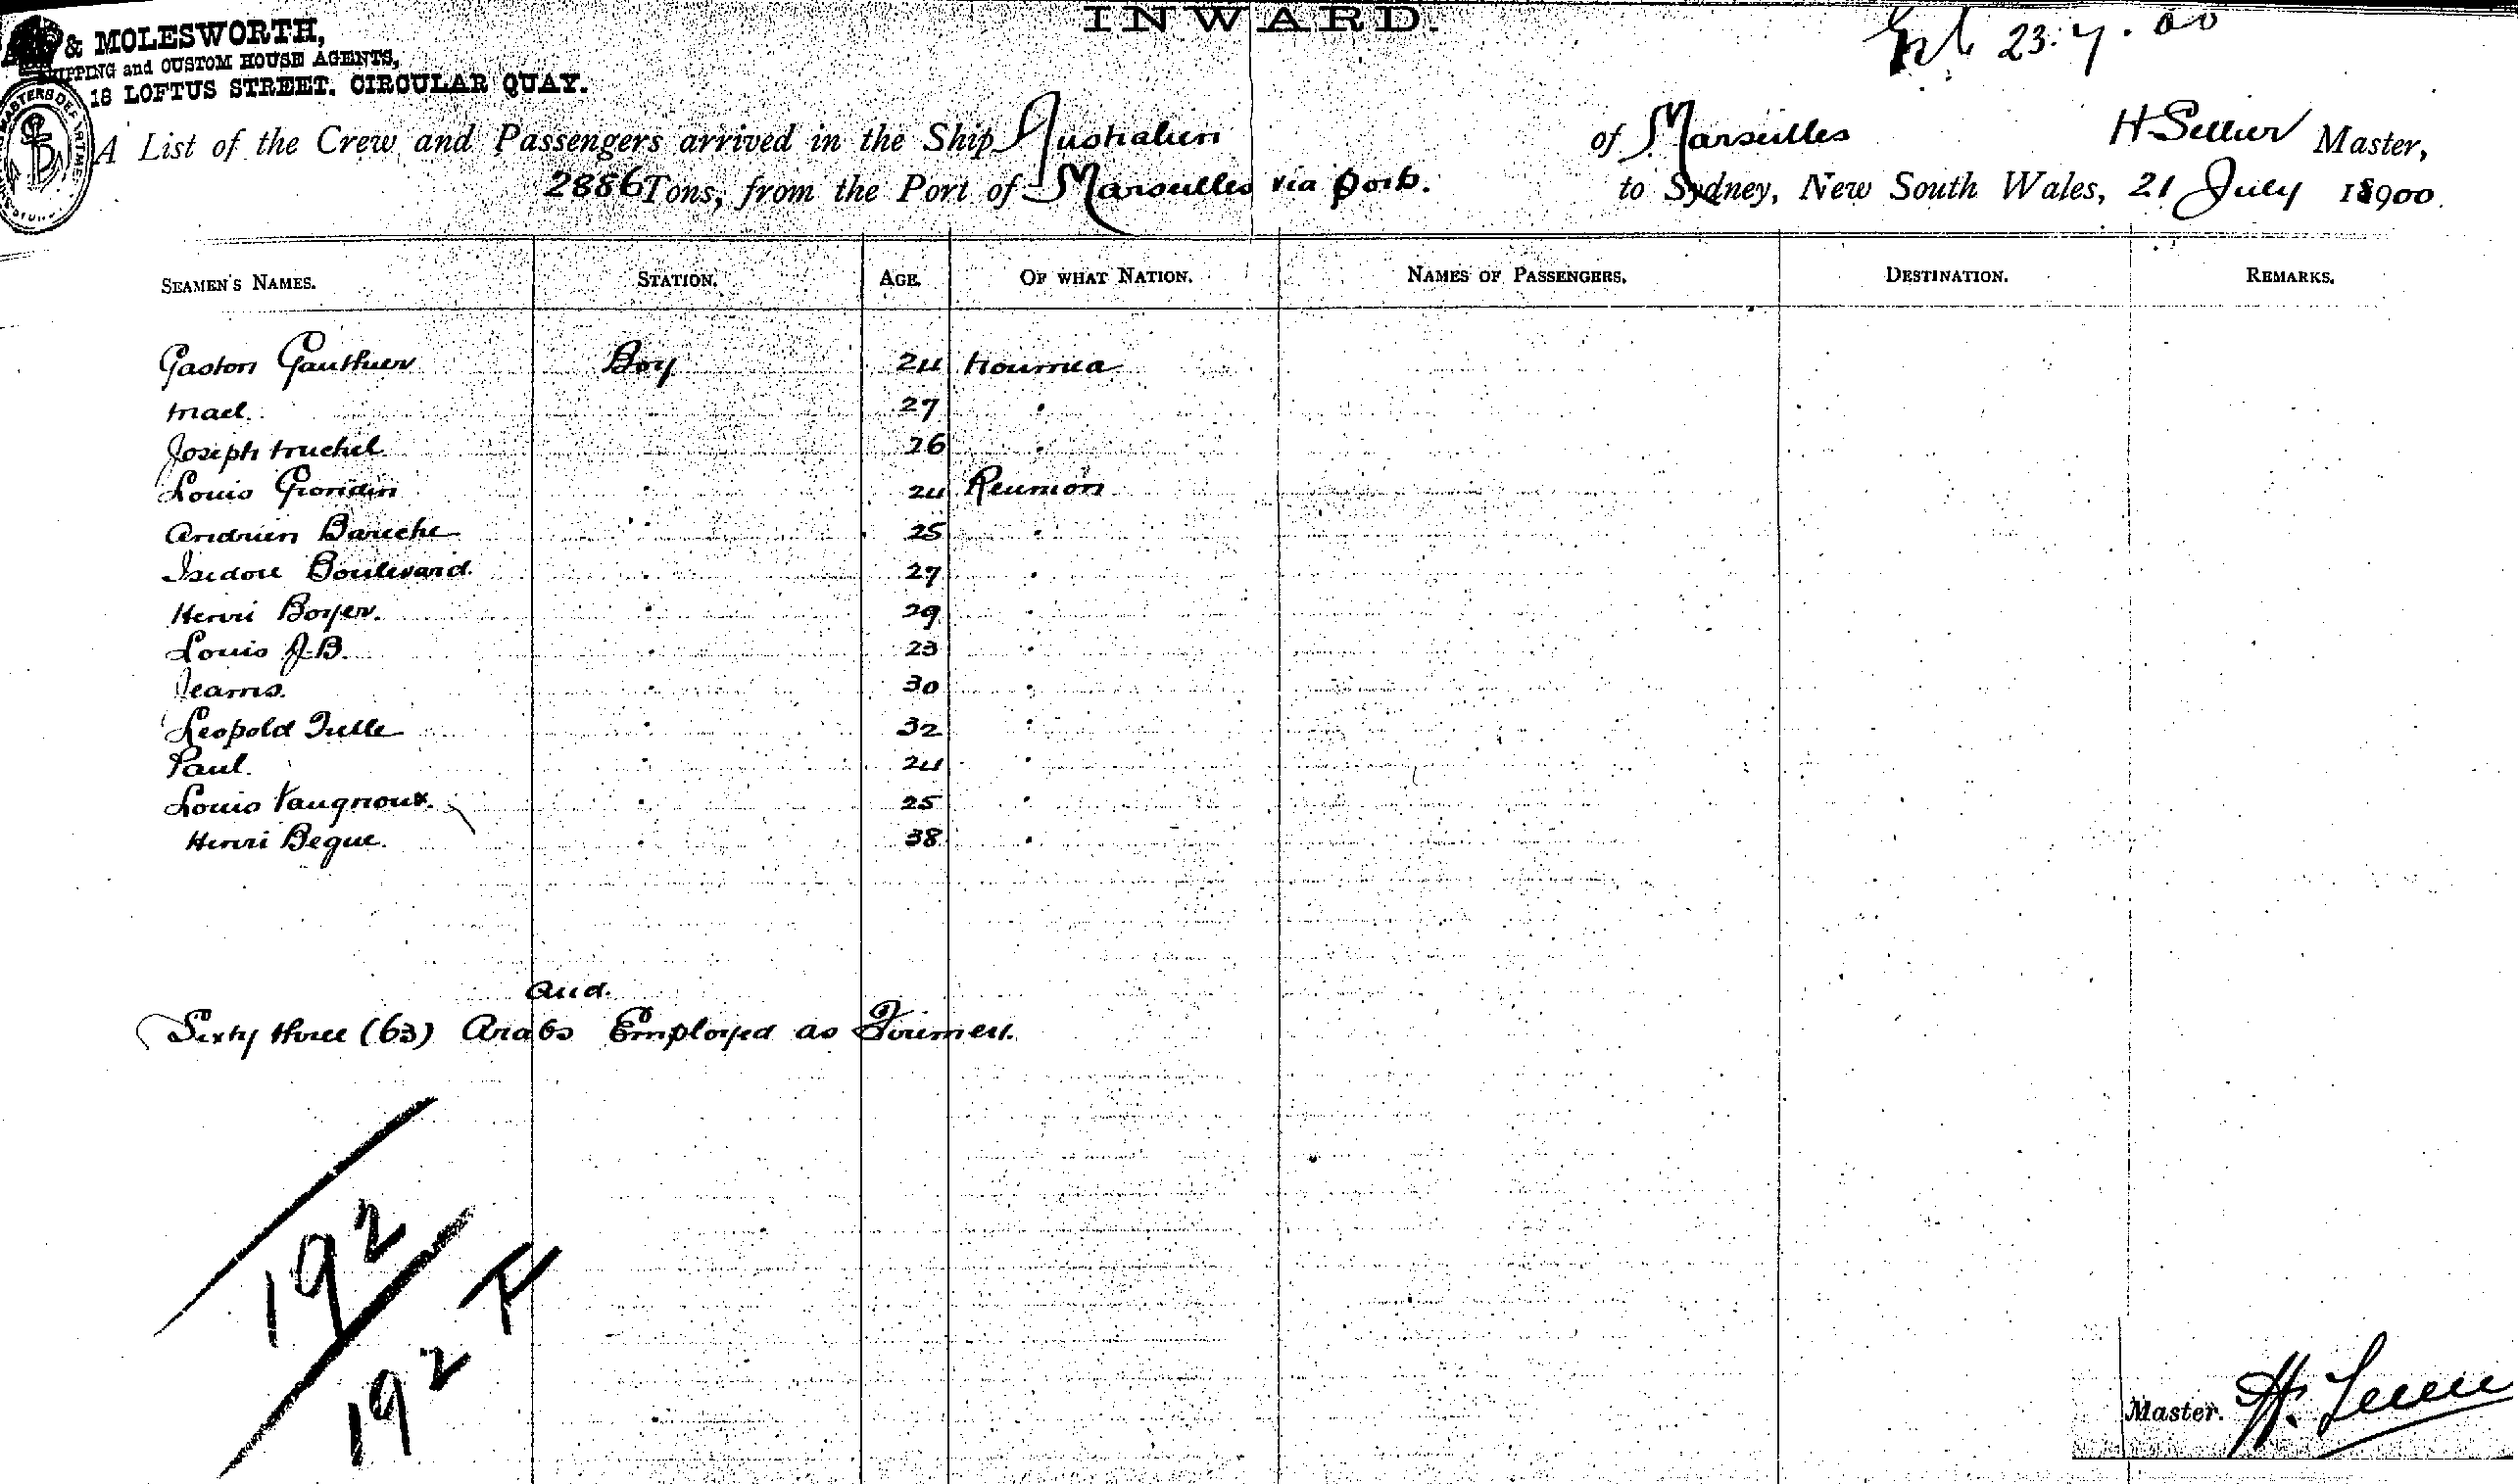 INWARD.
23.7.00
& MOLESWORTH,
SHIPPING and CUSTOM HOUSE AGENTS,
18 LOFTUS STREET. CIRCULAR QUAY.
A List of the Crew and Passengers arrived in the Ship Australien of Marseilles H. Sellier Master,
2886 Tons, from the Port of Marseilles via ports. to Sydney, New South Wales, 21 July 18900.
SEAMEN'S NAMES. STATION. AGE. OF WHAT NATION. NAMES OF PASSENGERS. DESTINATION. REMARKS.
Gaston Gauthier Boy 24 Noumea
Mael. 27 "
Joseph 26 "
Louis Grondin " 24 Reunion
Andrien Bareche " 25 "
Isidore Boulevard. " 27 "
Henri Boyer. " 29 "
Louis J.B. " 23 "
" 30 "
Leopold " 32 "
Paul. " 24 "
Louis " 25 "
Henri Begue. " 38 "
and.
Sixty three (63) Arabs Employed as Firemen.
192
192 F
Master.